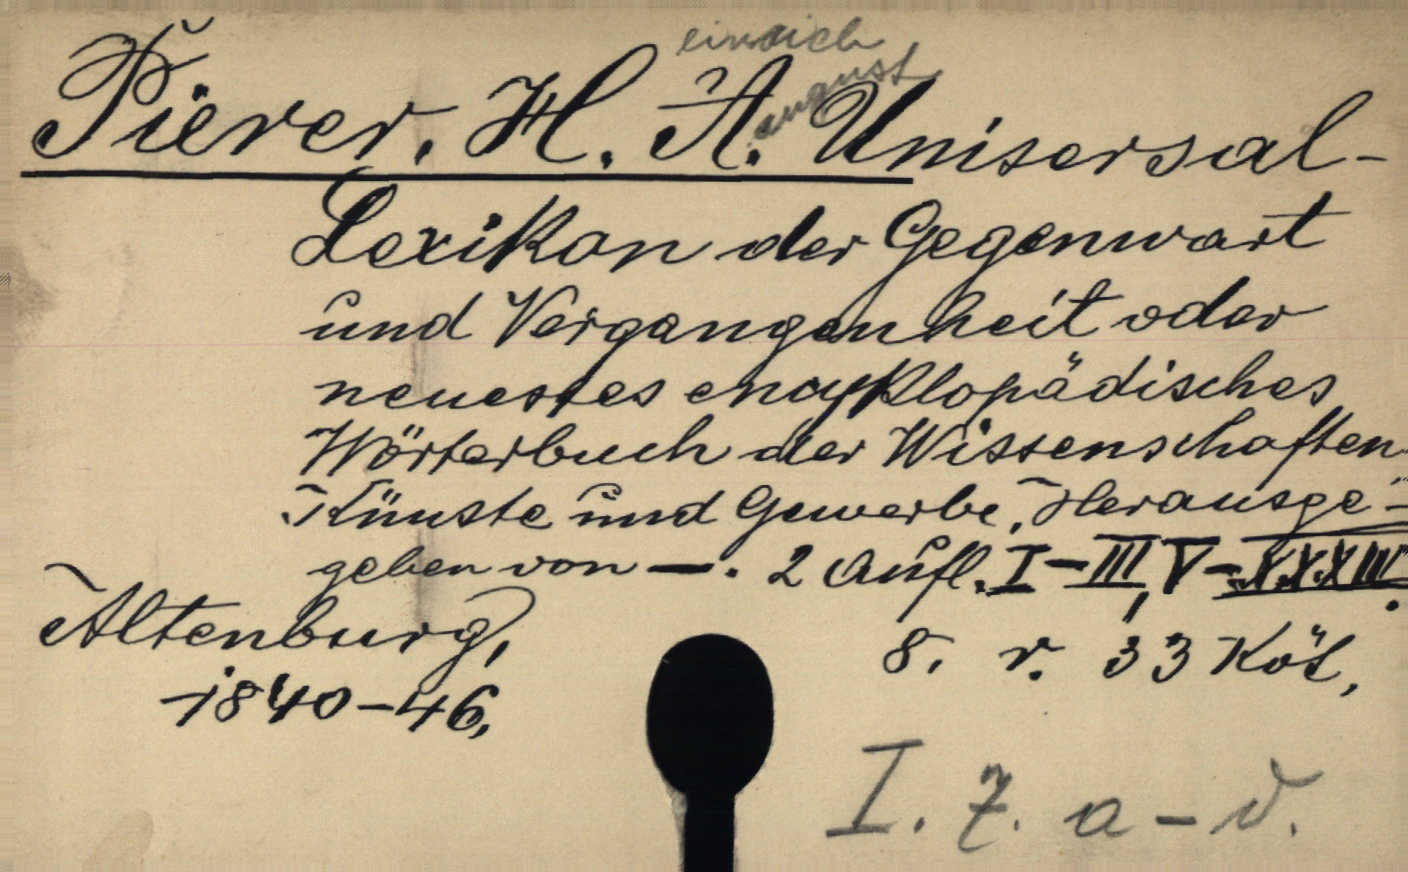 einrich
august
Pierer, H. A. Universal-
Lexikon der Gegenwart
und Vergangenheit oder
neuestes encyklopädisches
Wörterbuch der Wissenschaften
Künste und Gewerbe, Herausge-
geben von —. 2 Aufl. I-III, V-XXXIII.
Altenburg,
8. r. 33 Köt,
1840-46,
I. 7. a-v.